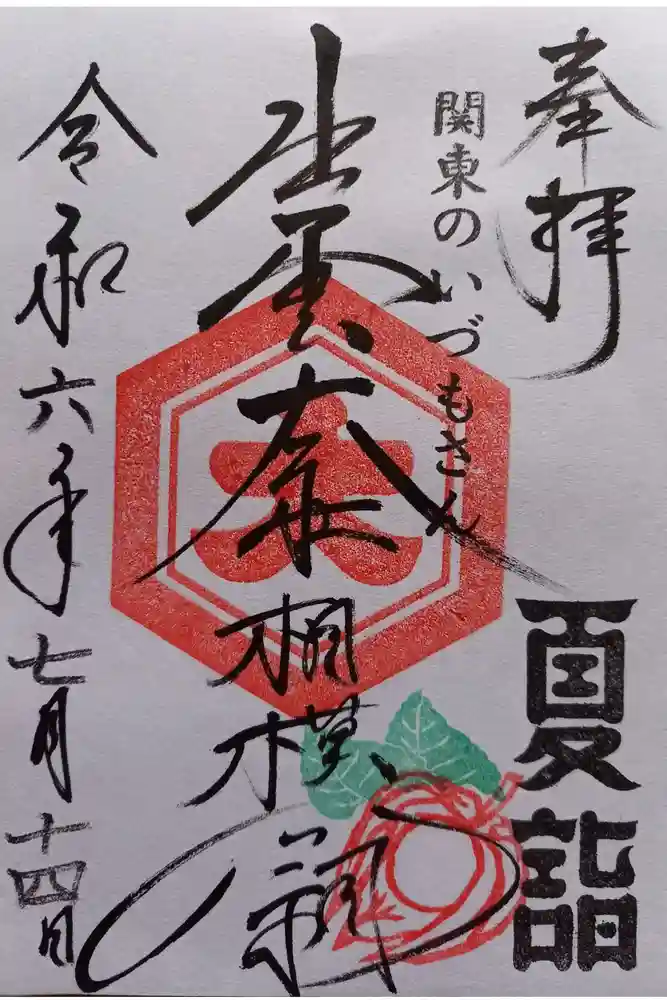 奉拝
夏詣
関東のいづもさん
出雲大社相模分祠
令和六年七月十四日